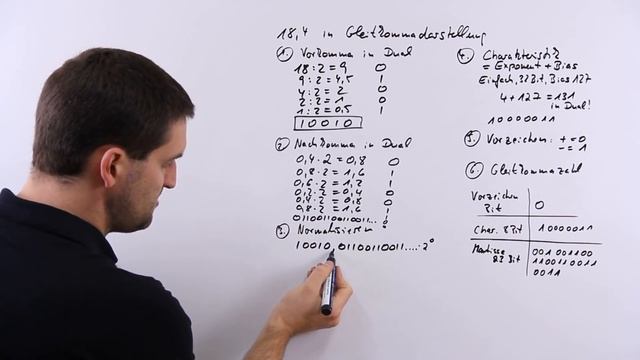 18,4 in Gleitkommadarstellung
1. Vorkomma in Dual
18:2 = 9 0
9:2 = 4,5 1
4:2 = 2 0
2:2 = 1 0
1:2 = 0,5 1
10010
2. Nachkomma in Dual
0,4·2 = 0,8 0
0,8·2 = 1,6 1
0,6·2 = 1,2 1
0,2·2 = 0,4 0
0,4·2 = 0,8 0
0,8·2 = 1,6 1
011001100110011...
3. Normalisieren
10010,01100110011....·2⁰
4. Charakteristik
= Exponent + Bias
Einfach, 32 Bit, Bias 127
4 + 127 = 131
in Dual!
10000011
5. Vorzeichen: + = 0
- = 1
6. Gleitkommazahl
Vorzeichen
Bit 0
Char. 8 Bit 10000011
Mantisse
23 Bit
001001100
1100110011
0011